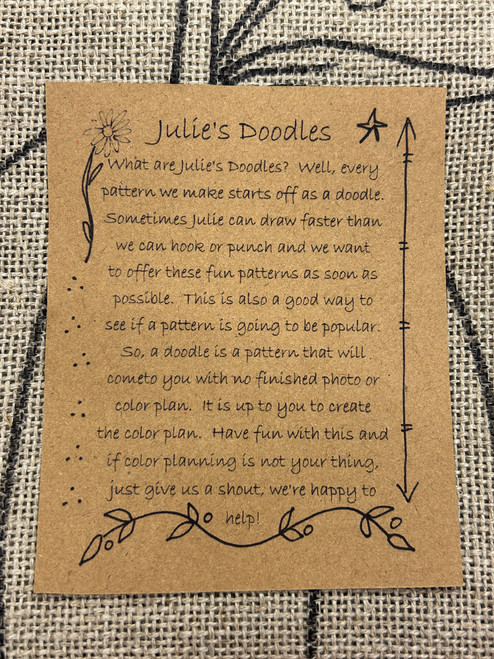 Julie's Doodles
What are Julie's Doodles? Well, every
pattern we make starts off as a doodle.
Sometimes Julie can draw faster than
we can hook or punch and we want
to offer these fun patterns as soon as
possible. This is also a good way to
see if a pattern is going to be popular.
So, a doodle is a pattern that will
cometo you with no finished photo or
color plan. It is up to you to create
the color plan. Have fun with this and
if color planning is not your thing,
just give us a shout, we're happy to
help!